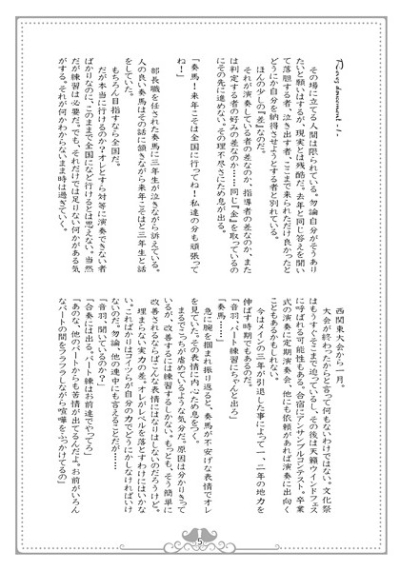 その場に立てる人間は限られている。勿論自分がそうあり
たいと願いはするが、現実とは残酷だ。去年と同じ答えを聞い
て落胆する者、泣き出す者、ここまで来られただけ良かったと
どうにか自分を納得させようとする者と別れている。
ほんの少しの『差』なのだ。
それが演奏している者の差なのか、指導者の差なのか、また
は判定する者の好みの差なのか……同じ『金』を取っているの
にその先に進めない。その理不尽さにため息が出る。
「奏馬！来年こそは全国に行ってね！私達の分も頑張って
ね！」
部長職を任された奏馬に三年生が泣きながら訴えている。
人の良い奏馬はその話に頷きながら来年こそはと三年生と話
をしていた。
もちろん目指すなら全国だ。
だが本当に行けるのか？オレとすら対等に演奏できない者
ばかりなのに、このままで全国になど行けるとは思えない。当然
だが練習は必要だ。でも、それだけでは足りない何かがある気
がする。それが何かわからないまま時は過ぎていく。
西関東大会から一月。
大会が終わったからと言って何もないわけではない。文化祭
はもうすぐそこまで迫っているし、その後は天籟ウインドフェス
に呼ばれる可能性もある。合宿にアンサンブルコンテスト。卒業
式の演奏に定期演奏会、他にも依頼があれば演奏に出向く
こともあるかもしれない。
今はメインの三年が引退した事によって一、二年の地力を
伸ばす時期でもあるのだ。
「音羽、パート練習にちゃんと出ろ」
「奏馬……」
急に腕を掴まれ振り返ると、奏馬が不安げな表情でオレ
を見ていた。その表情に内心ため息をつく。
まるでこっちが虐めているような気分だ。原因は分かりきって
いるが、改善するには練習するしかない。もっとも、そう簡単に
改善されるならばあんな表情にはなりはしないのだろうけど。
埋まらない実力の差。オレのレベルを落とすわけにはいかな
い。こればかりはコイツらが自分の力でどうにかしなければいけ
ないのだ。勿論、他の連中にも言えることだが……
「音羽、聞いているのか？」
「合奏には出る。パート練はお前達でやってろ」
「あのな、他のパートからも苦情が出てるんだよ。お前がいろん
なパートの間をフラフラしながら喧嘩をふっかけてるの」
5